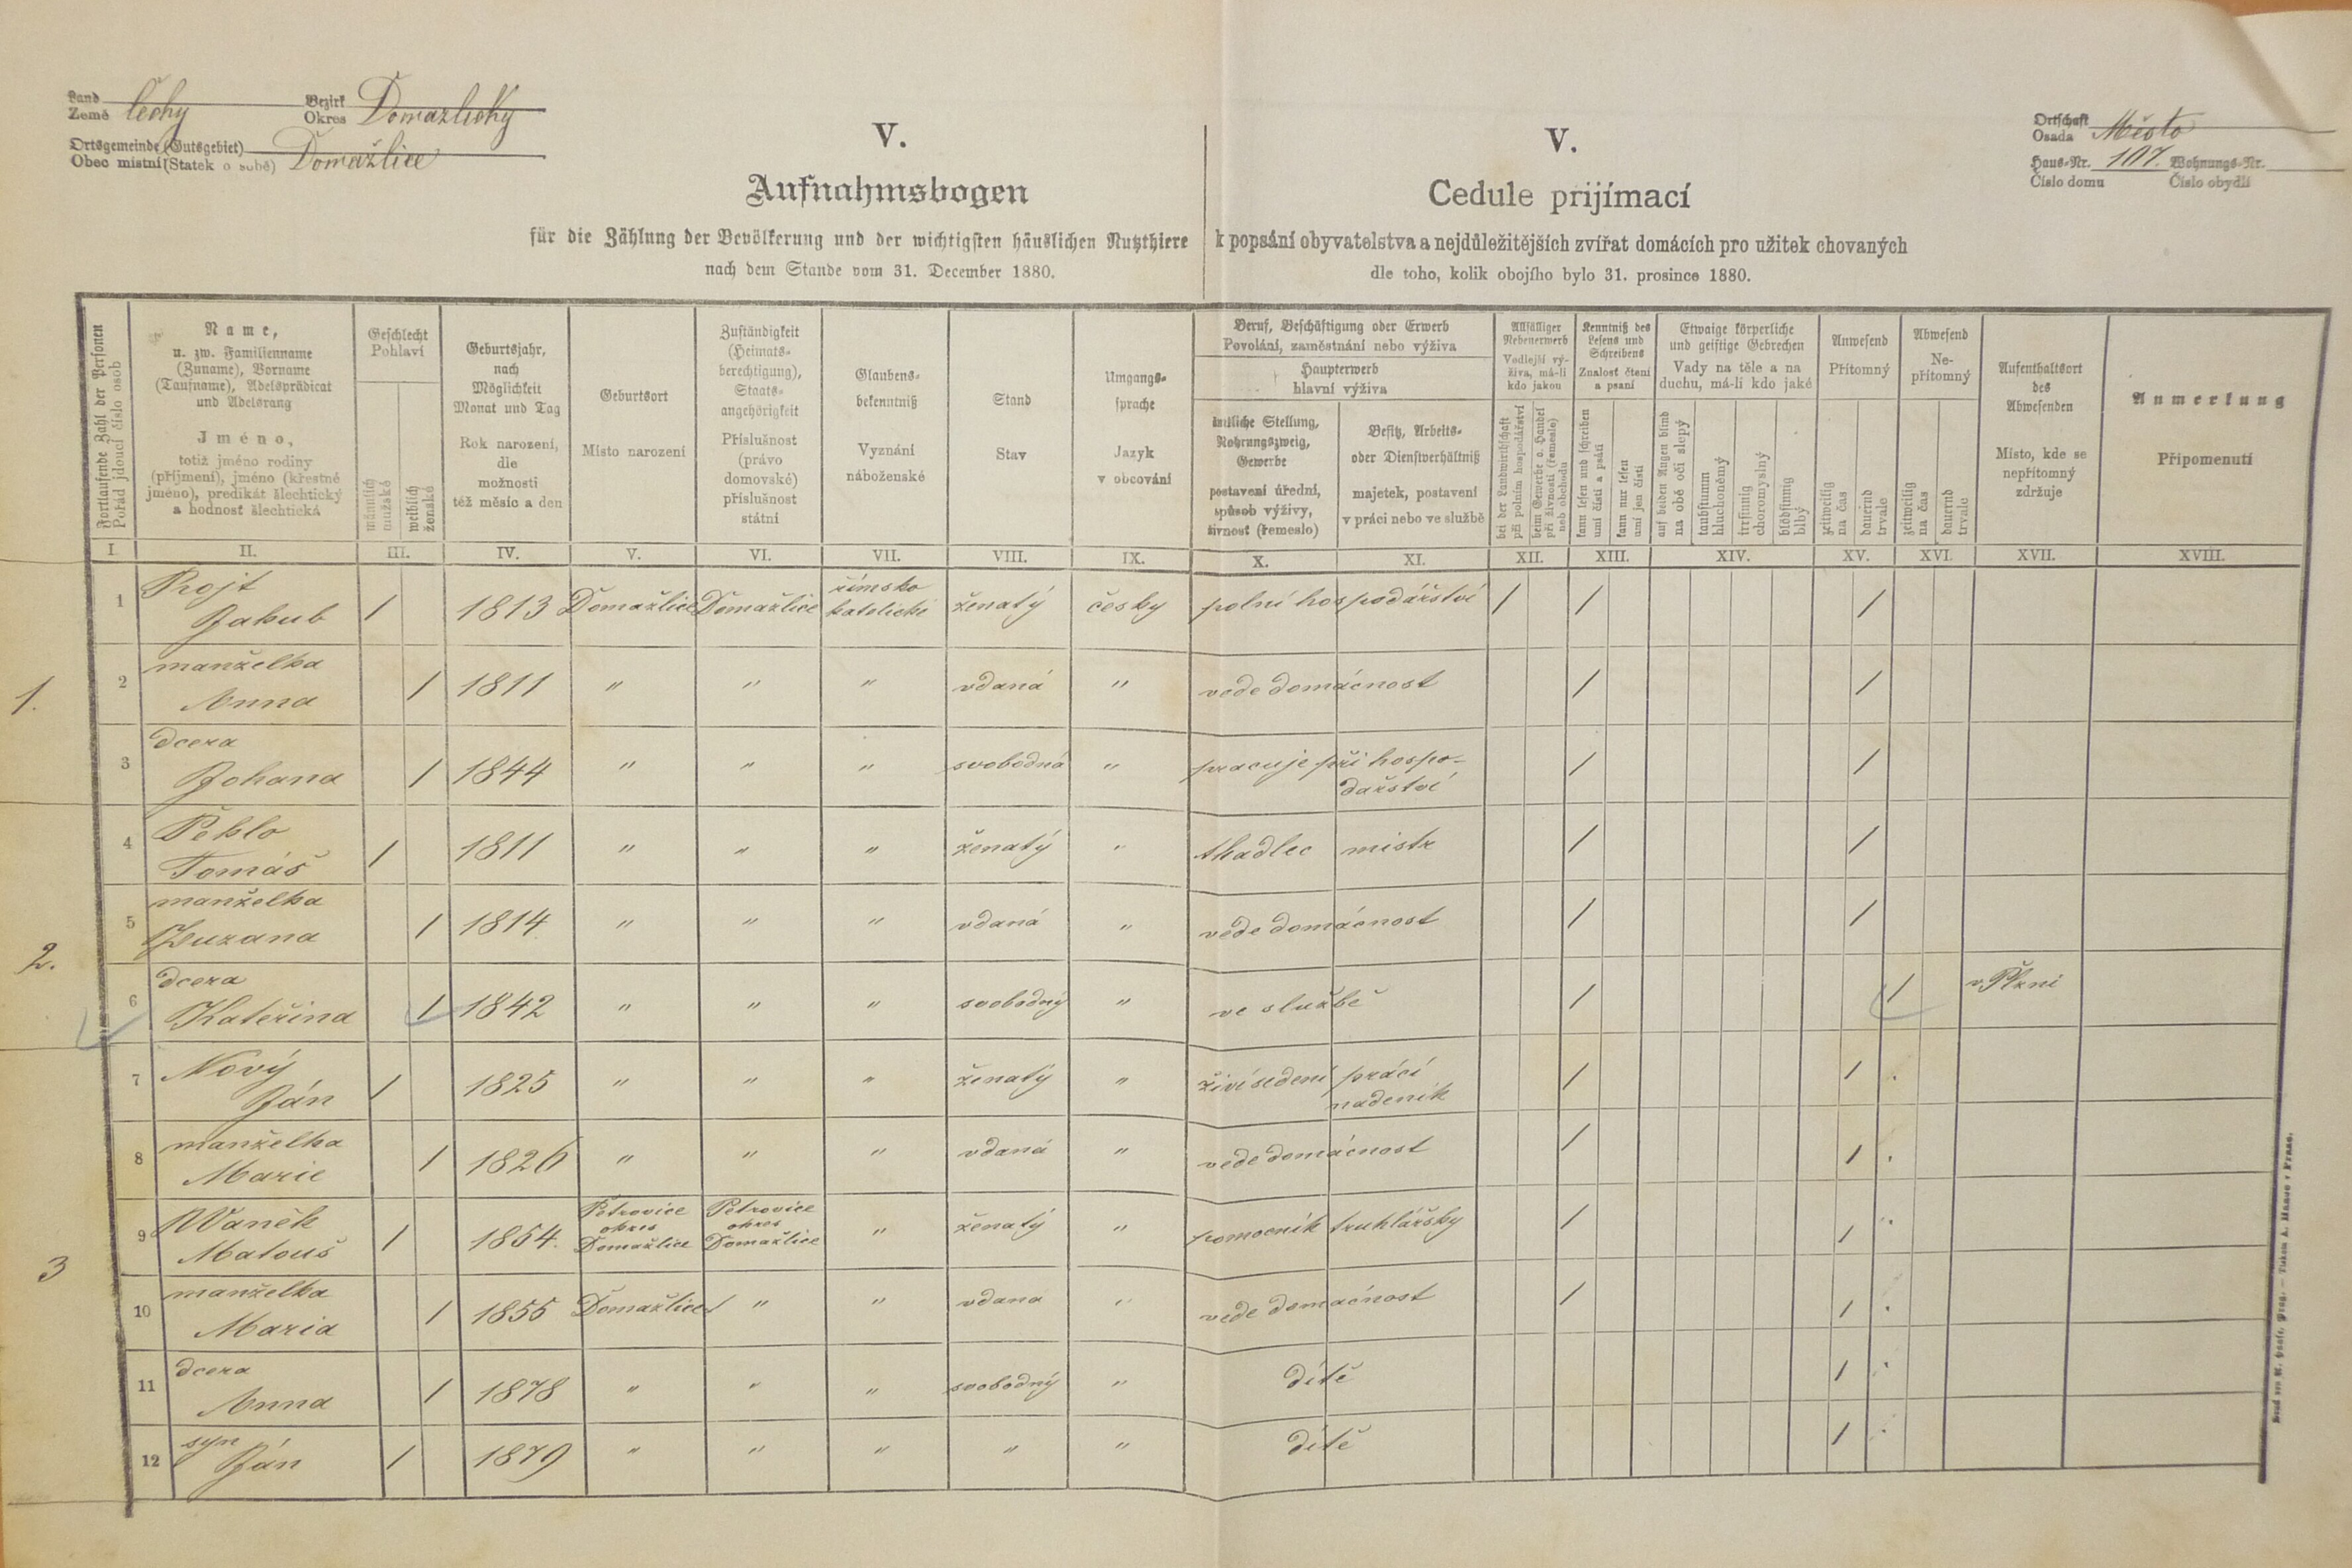 Land
Země Čechy
Bezirk
Okres Domažlický
Ortsgemeinde (Gutsgebiet)
Obec místní (Statek o sobě) Domažlice
V.
Aufnahmsbogen
für die Zählung der Bevölkerung und der wichtigsten häuslichen Nutzthiere
nach dem Stande vom 31. December 1880.
V.
Cedule prijímací
k popsání obyvatelstva a nejdůležitějších zvířat domácích pro užitek chovaných
dle toho, kolik obojího bylo 31. prosince 1880.
Ortschaft
Osada Město
Haus-Nr. 107. Wohnungs-Nr.
Číslo domu Číslo obydlí
Fortlaufende Zahl der Personen
Pořád jdoucí číslo osob
Name,
u. zw. Familienname
(Zuname), Vorname
(Taufname), Adelsprädicat
und Adelsrang
Jméno,
totiž jméno rodiny
(příjmení), jméno (křestné
jméno), predikát šlechtický
a hodnosť šlechtická
Geschlecht
Pohlaví
männlich
mužské
weiblich
ženské
Geburtsjahr,
nach
Möglichkeit
Monat und Tag
Rok narození,
dle
možnosti
též měsíc a den
Geburtsort
Místo narození
Zuständigkeit
(Heimats-
berechtigung),
Staats-
angehörigkeit
Příslušnost
(právo
domovské)
příslušnost
státní
Glaubens-
bekenntniß
Vyznání
náboženské
Stand
Stav
Umgangs-
sprache
Jazyk
v obcování
Beruf, Beschäftigung oder Erwerb
Povolání, zaměstnání nebo výživa
Haupterwerb
hlavní výživa
ämtliche Stellung,
Nahrungszweig,
Gewerbe
postavení úřední,
spůsob výživy,
živnosť (řemeslo)
Besitz, Arbeits-
oder Dienstverhältniß
majetek, postavení
v práci nebo ve službě
Allfälliger
Nebenerwerb
Vedlejší vý-
živa, má-li
kdo jakou
bei der Landwirthschaft
při polním hospodářství
beim Gewerbe o. Handel
při živnosti (řemesle)
neb obchodu
Kenntniß des
Lesens und
Schreibens
Znalosť čtení
a psaní
kann lesen und schreiben
umí čísti a psáti
kann nur lesen
umí jen čísti
Etwaige körperliche
und geistige Gebrechen
Vady na těle a na
duchu, má-li kdo jaké
auf beiden Augen blind
na obě oči slepý
taubstumm
hluchoněmý
irrsinnig
choromyslný
blödsinnig
blbý
Anwesend
Přítomný
zeitweilig
na čas
dauernd
trvale
Abwesend
Ne-
přítomný
zeitweilig
na čas
dauernd
trvale
Aufenthaltsort
des
Abwesenden
Místo, kde se
nepřítomný
zdržuje
Anmerkung
Připomenutí
I. II. III. IV. V. VI. VII. VIII. IX. X. XI. XII. XIII. XIV. XV. XVI. XVII. XVIII.
1.
1 Rojt
Jakub / 1813 Domažlice Domažlice římsko
katolické ženatý česky polní hospodářství / / /
2 manželka
Anna / 1811 " " " vdaná " vede domácnost / /
3 dcera
Johana / 1844 " " " svobodná " pracuje při hospo-
dářství / /
2.
4 Peklo
Tomáš / 1811 " " " ženatý " tkadlec mistr / /
5 manželka
Zuzana / 1814 " " " vdaná " vede domácnost / /
6 dcera
Kateřina / 1842 " " " svobodný " ve službě / / v Plzni
3
7 Nový
Ján / 1825 " " " ženatý " živí se denní prácí
nadeník / /
8 manželka
Marie / 1826 " " " vdaná " vede domácnost / /
9 Waněk
Matouš / 1854. Petrovice
okres
Domažlice Petrovice
okres
Domažlice " ženatý " pomocník truhlářský / /
10 manželka
Maria / 1855 Domažlice " " vdana " vede domácnost / /
11 dcera
Anna / 1878 " " " svobodný " dítě /
12 syn
Ján / 1879 " " " " " dítě /